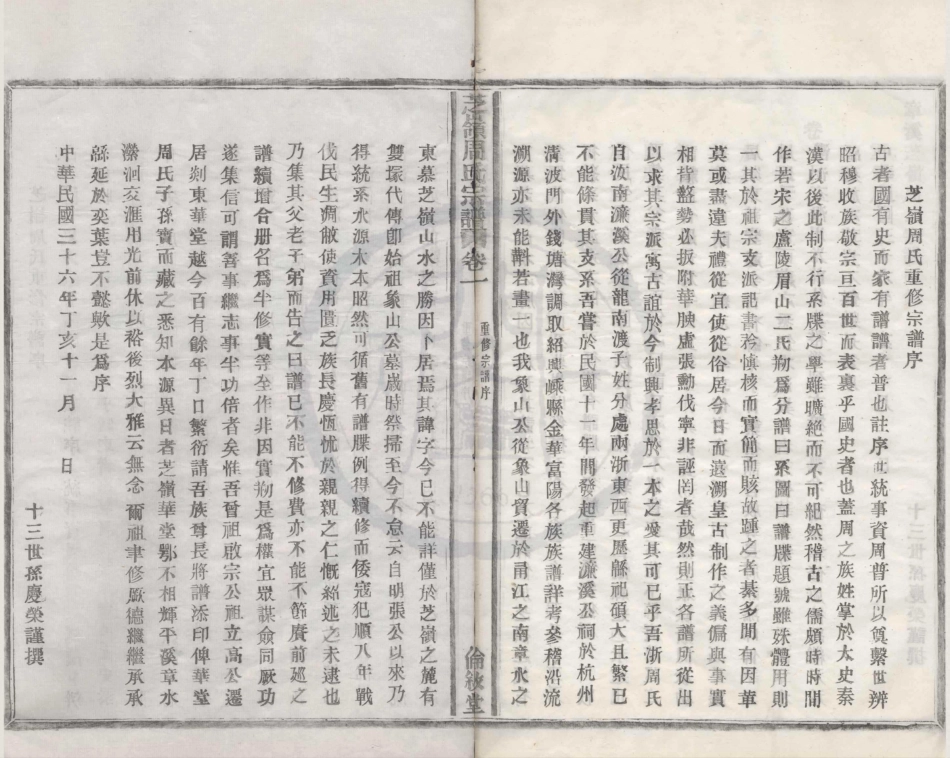 芝嶺周氏重修宗譜序
古者國有史而家有譜譜者普也註序世統事資周普所以奠繫世辨
昭穆收族敬宗亘百世而表裏乎國史者也蓋周之族姓掌於太史秦
漢以後此制不行系牒之學雖曠絶而不可紀然稽古之儒頗時時間
作若宋之盧陵眉山二氏剏爲分譜曰系圖曰譜牒題號雖殊體用則
一其於祖宗支派記書矜愼核而實簡而賅故踵之者綦多間有因華
莫或盡違夫禮從宜使從俗居今日而遠溯皇古制作之義偏與事實
相背盭勢必扳附華腴虛張勳伐寧非誣罔者哉然則正各譜所從出
以求其宗派寓古誼於今制興孝思於一本之愛其可已乎吾浙周氏
自汝南濂溪公從龍南渡子姓分處兩浙東西更歷緜祀碩大且繁已
不能條貫其支系吾嘗於民國十一年間發起重建濂溪公祠於杭州
清波門外錢塘灣調取紹興嵊縣金華富陽各族族譜詳考參稽沿流
溯源亦未能斠若畫一也我象山公從象山貿遷於甬江之南章水之
芝嶺周氏宗譜 卷一 重修宗譜序 一 倫敘堂
東慕芝嶺山水之勝因卜居焉其諱字今已不能詳僅於芝嶺之麓有
雙塚代傳卽始祖象山公墓歲時祭掃至今不怠云自明張公以來乃
得統系水源木本昭然可循舊有譜牒例得續修而倭寇犯順八年戰
伐民生凋敝使資用匱乏族長慶恆怵於親親之仁慨紹述之未逮也
乃集其父老子弟而告之曰譜已不能不修費亦不能不節賡前廸之
譜續增合册名爲半修實等至作非因實剏是爲權宜眾謀僉同厥功
遂集信可謂善事繼志事半功倍者矣惟吾曾祖啟宗公祖立高公遷
居剡東華堂越今百有餘年丁口繁衍請吾族尊長將譜添印俾華堂
周氏子孫寶而藏之悉知本源異日者芝嶺華堂鄂不相輝平溪章水
瀠洄交滙用光前休以裕後烈大雅云無念爾祖聿修厥德繼繼承承
緜延於奕葉豈不懿歟是爲序
中華民國三十六年丁亥十一月　日
十三世孫慶榮謹撰